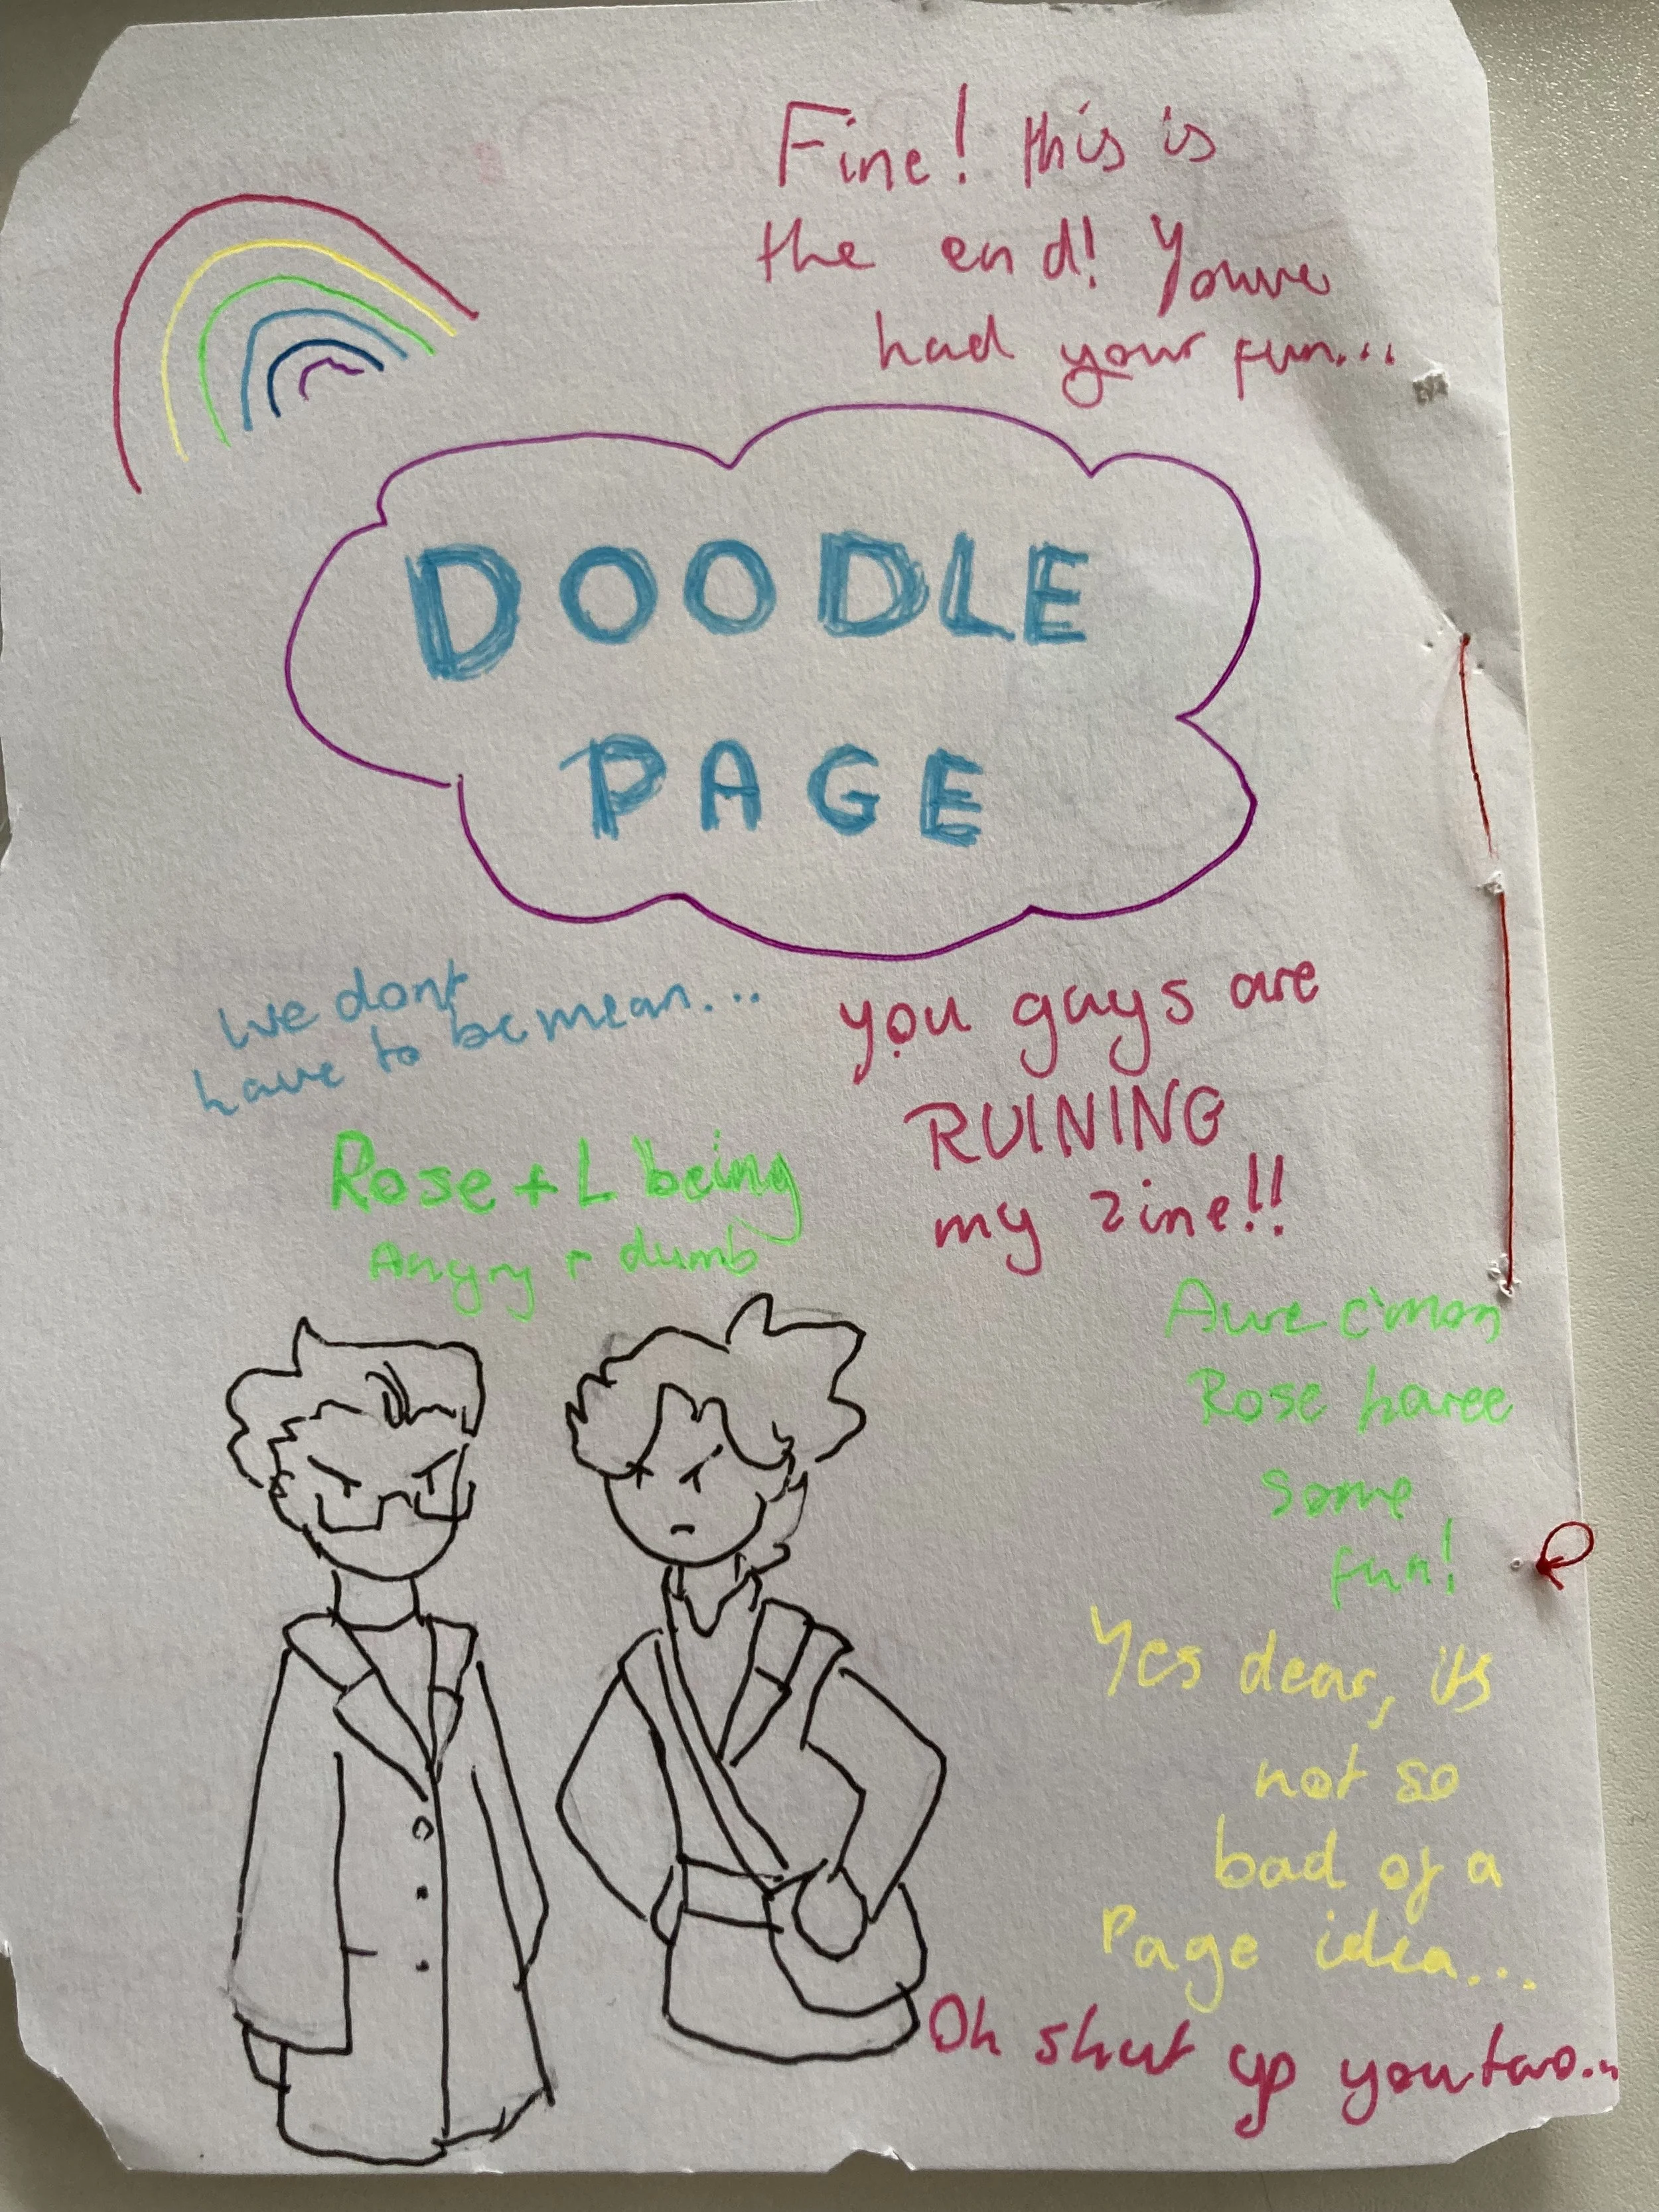 Fine! this is
the end! Youve
had your fun...
DOODLE
PAGE
We dont
have to be mean...
you guys are
RUINING
my zine!!
Rose + L being
Angry + dumb
Awe c'mon
Rose haree
some
fun!
Yes dear, its
not so
bad of a
Page idea...
Oh shut up you two...